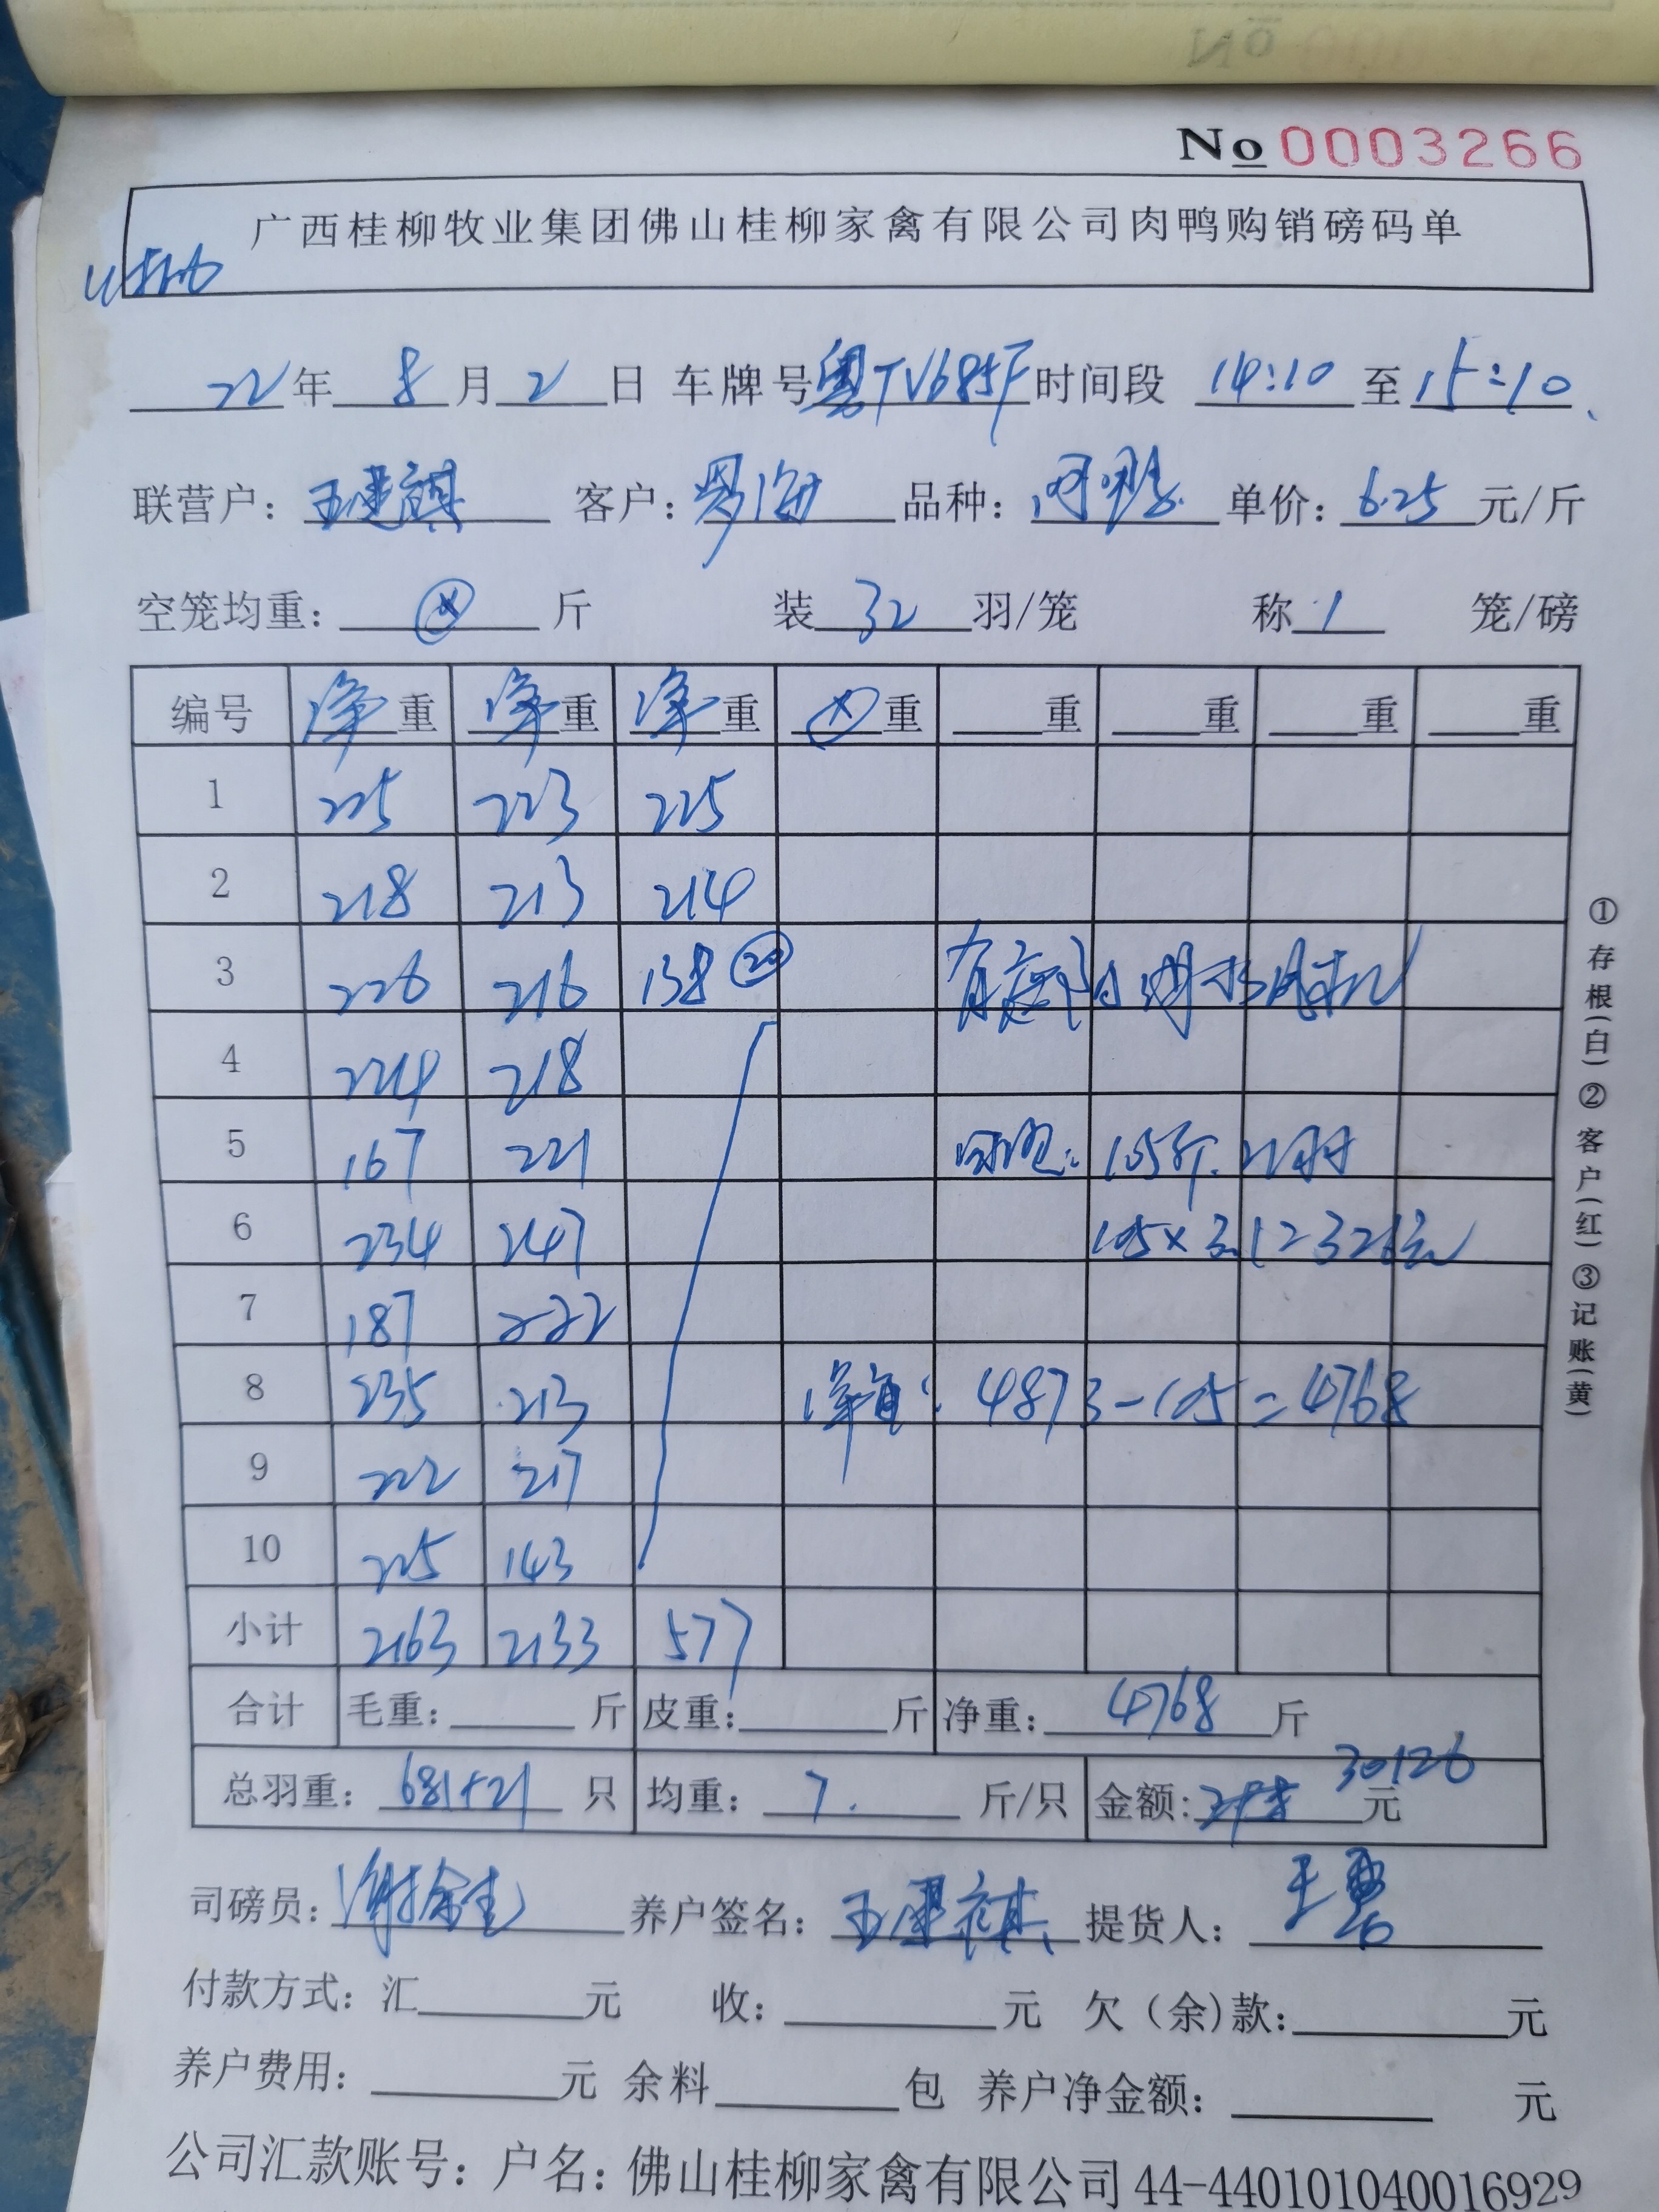 No 0003266
广西桂柳牧业集团佛山桂柳家禽有限公司肉鸭购销磅码单
22年8月2日 车牌号粤TV685F时间段 14:10至15:10
联营户:王建祺 客户:罗海 品种: 单价:6.25元/斤
空笼均重: 斤 装32羽/笼 称1笼/磅
编号 净重 净重 净重 重 重 重 重 重
1 225 223 225
2 218 213 214
3 226 216 138 20
4 224 218
5 167 221 105斤. 21只
6 234 247 105×3.1=326元
7 187 222
8 235 213 净重: 4873-105=4768
9 222 217
10 225 143
小计 2163 2133 577
合计 毛重: 斤 皮重: 斤 净重:4768斤
总羽重:681+21只 均重:7.斤/只 金额: 元 30126
司磅员: 养户签名:王建祺 提货人:
付款方式:汇 元 收: 元 欠(余)款: 元
养户费用: 元 余料 包 养户净金额: 元
公司汇款账号:户名:佛山桂柳家禽有限公司44-440101040016929
①存根(白)②客户(红)③记账(黄)